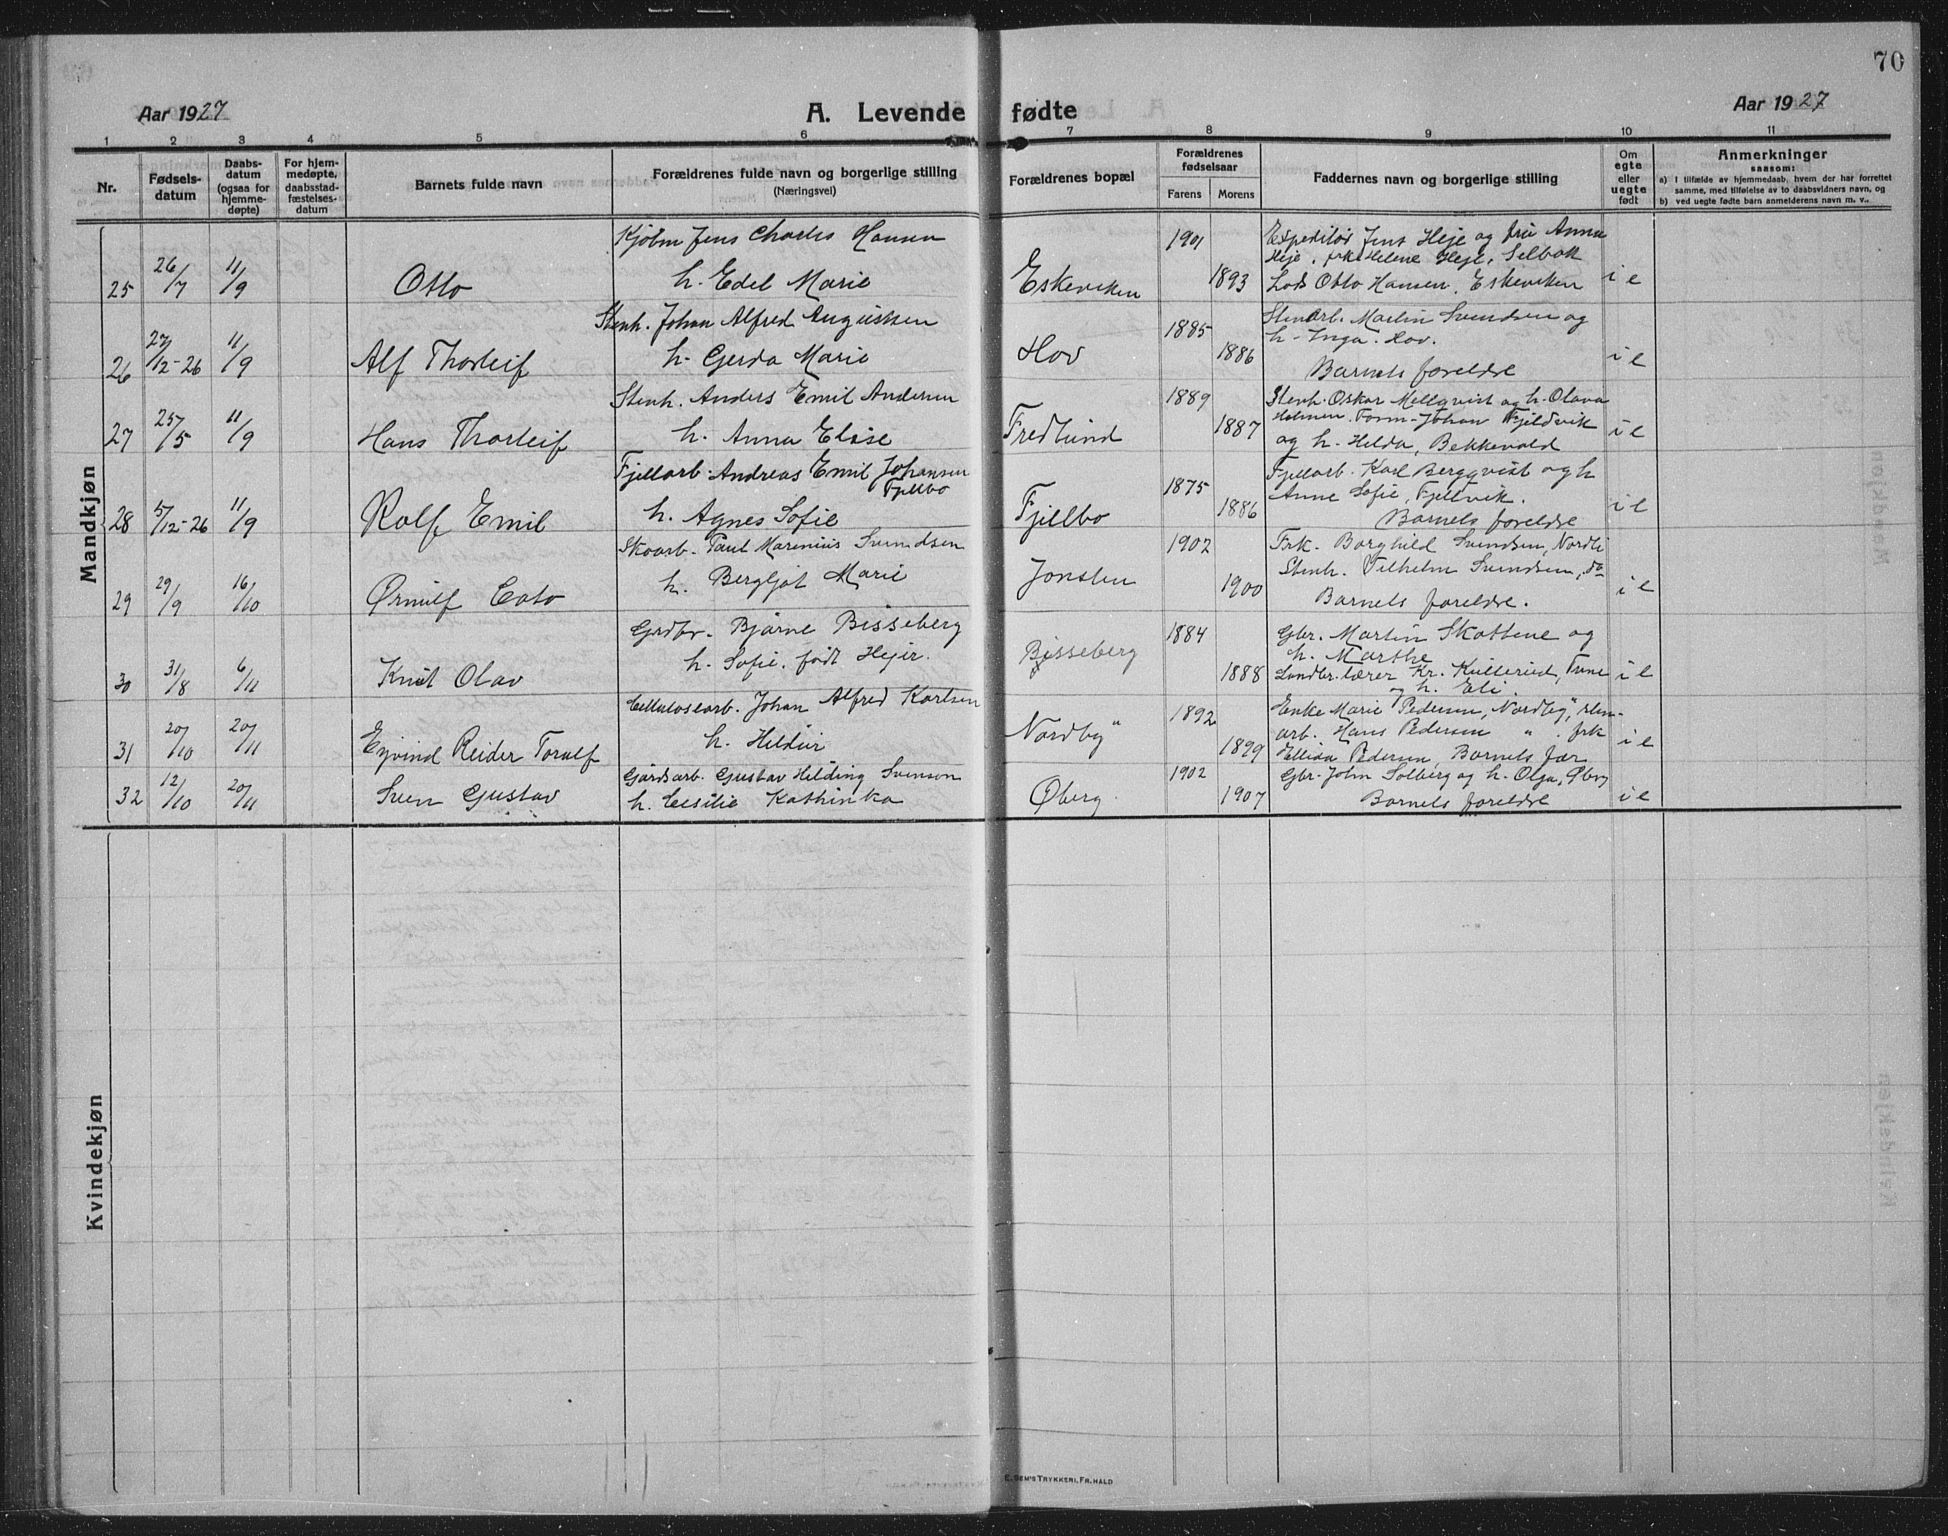 70
Aar 1927
A. Levende fødte
Aar 1927
1 2 3 4 5 6 7 8 9 10 11
Nr.
Fødsels-
datum
Daabs-
datum
(ogsaa for
hjemme-
døpte)
For hjem-
medøpte,
daabsstad-
fæstelses-
datum
Barnets fulde navn
Forældrenes fulde navn og borgerlige stilling
(Næringsvei)
Forældrenes bopæl
Forældrenes
fødselsaar
Farens Morens
Faddernes navn og borgerlige stilling
Om
egte
eller
uegte
født
Anmerkninger
saasom:
a) I tilfælde av hjemmedaab, hvem der har forrettet
samme, med tilføielse av to daabsvidners navn, og
b) ved uegte fødte barn anmelderens navn m. v..
Mandkjøn
25 26/7 11/9 Otto
Kjøbm Jens Charles Hansen
h. Edel Marie
Eskeviken
1901
1893
Expeditør Jens Heje og fru Anna
Heje, frk Helene Heje, Selbak
Lods Otto Hansen, Eskeviken
i e
26 27/12-26 11/9 Alf Thorleif
Stenh. Johan Alfred Augustsen
h. Gerda Marie
Hov
1885
1886
Stenarb. Martin Svendsen og
h. Inga. Hov.
Barnets foreldre
i e
27 25/5 11/9 Hans Thorleif
Stenh. Anders Emil Andersen
h. Anna Elise
Fredlund
1889
1887
Stenh. Oskar Mellqvist og h. Olava
Holmen. Form. Johan Fjeldvik
og h. Hilda, Bekkevold
i e
28 5/12-26 11/9 Rolf Emil
Fjellarb. Andreas Emil Johansen
Fjellbo
h. Agnes Sofie
Fjellbo
1875
1886
Fjellarb. Karl Bergqvist og h
Anne Sofie, Fjellvik.
Barnets foreldre
i e
29 29/9 16/10 Ørnulf Cato
Skoarb. Paul Marenius Svendsen
h. Bergljot Marie
Jonsten
1902
1900
Frk. Borghild Svendsen, Nordli
Stenh. Vilhelm Svendsen, do
Barnets foreldre.
i e
30 31/8 6/11 Knut Olav
Grdbr. Bjarne Bisseberg
h. Sofie, født Hejer.
Bisseberg
1884
1888
Gbr. Martin Skottene og
h. Marthe
Landbr. lærer Kr. Kullerud, Tune
og h. Eli.
i e
31 20/10 20/11 Ejvind Reider Toralf
Cellulosearb. Johan Alfred Karlsen
h. Hildur
Nordby"
1892
1899
Enke Marie Pedersen, Nordby", sten-
arb. Hans Pedersen " . frk
Ellida Pedersen, Barnets far
i e
32 12/10 20/11 Sven Gustav
Gårdsarb. Gustav Hilding Svenson
h. Cecilie Kathinka
Øberg.
1902
1907
Gbr. John Solberg og h. Olga, Øberg
Barnets foreldre
i e
Kvindekjøn
E. SEM'S TRYKKERI, FR.HALD